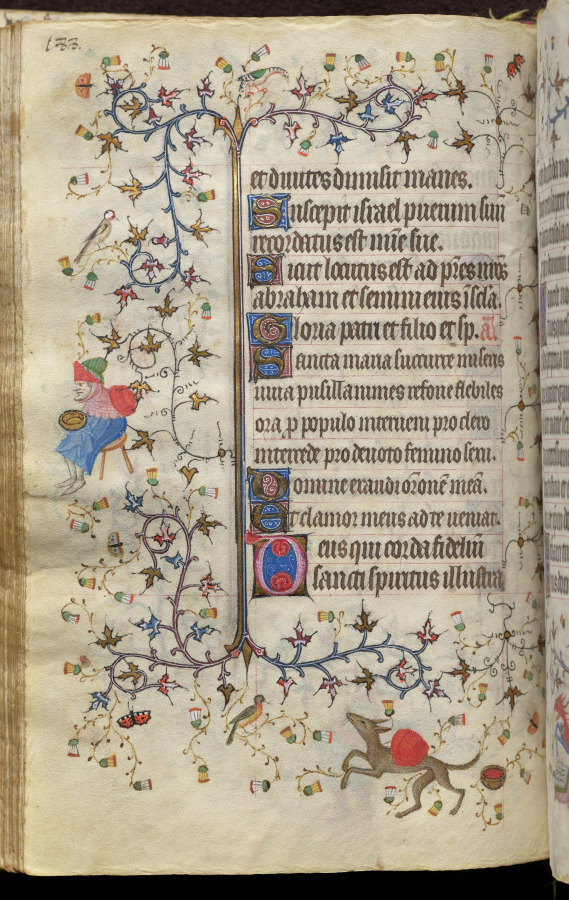 133.
et diuites dimisit inanes.
Suscepit israel puerum suu
recordatus est mie sue.
Sicut locutus est ad pres nros
abraham et semini eius i scla.
Gloria patri et filio et sp. a
Sancta maria succurre miseris
iuua pusillanimes refoue flebiles
ora, p populo interueni pro clero
intercede pro deuoto femineo sexu.
Domine exaudi oronē meā.
Et clamor meus ad te ueniat.
Deus qui corda fideliū
sancti spiritus illustra